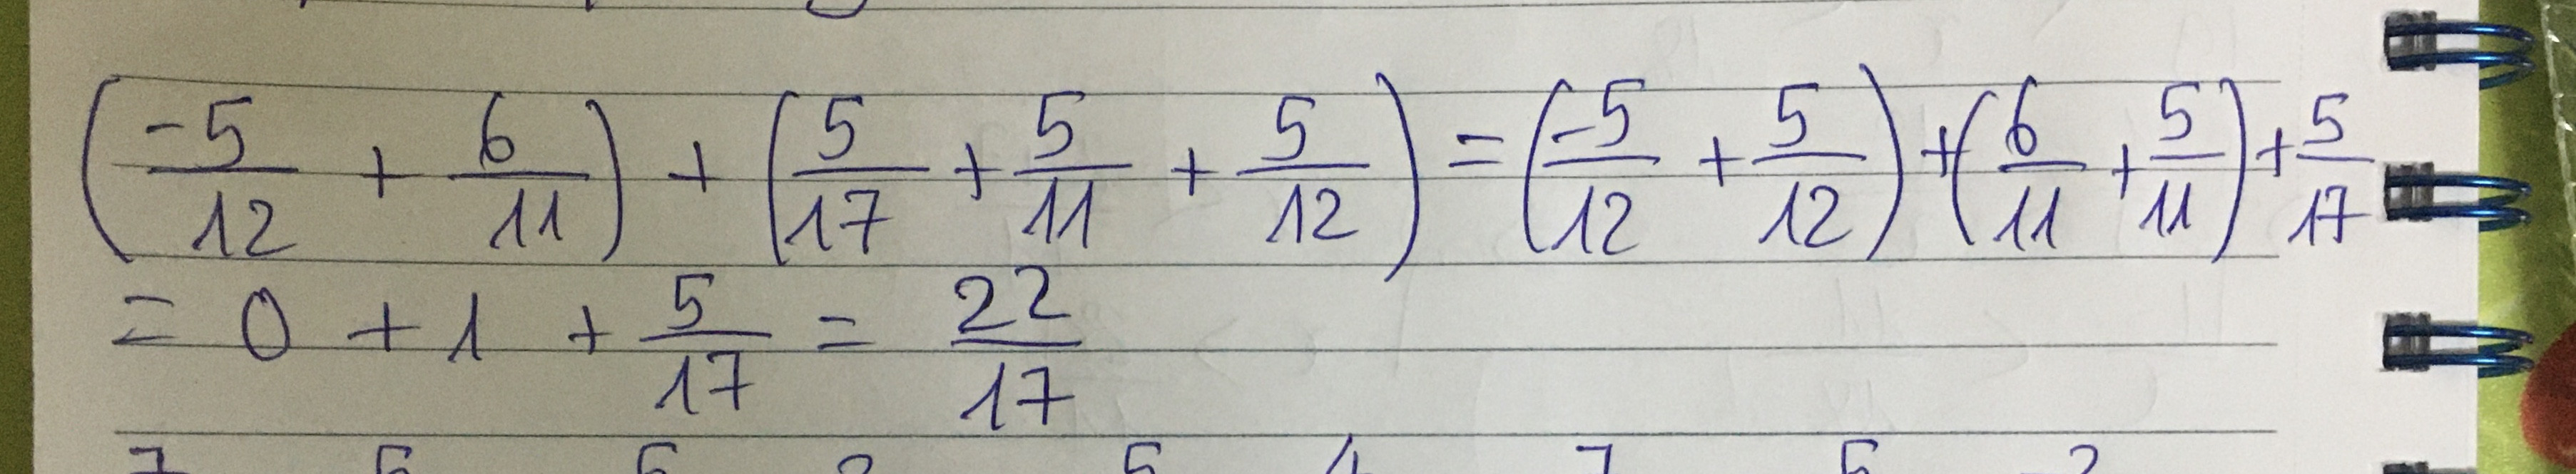 (-5/12 + 6/11) + (5/17 + 5/11 + 5/12) = (-5/12 + 5/12) + (6/11 + 5/11) + 5/17
= 0 + 1 + 5/17 = 22/17